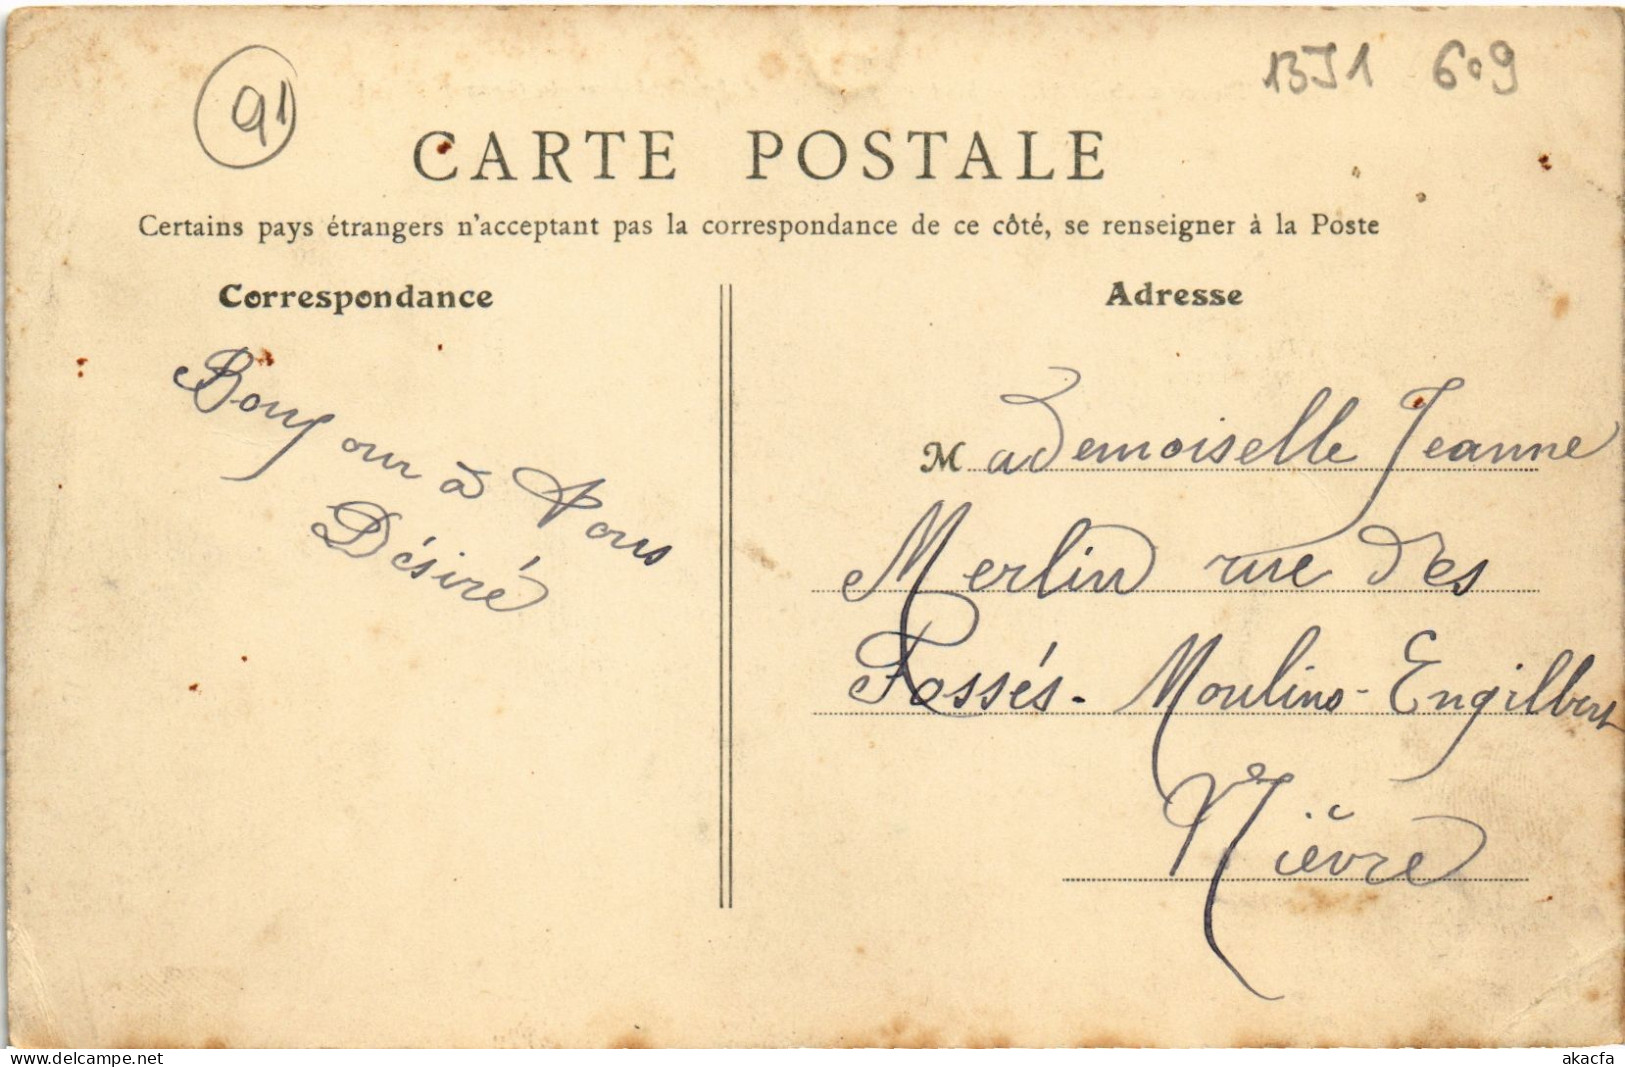 91
13J1 609
CARTE POSTALE
Certains pays étrangers n'acceptant pas la correspondance de ce côté, se renseigner à la Poste
Correspondance
Adresse
Bonjour à Vous
Désiré
Mademoiselle Jeanne
Merlin rue des
Fossés - Moulins - Engilbert
Nièvre
www.delcampe.net
akacfa